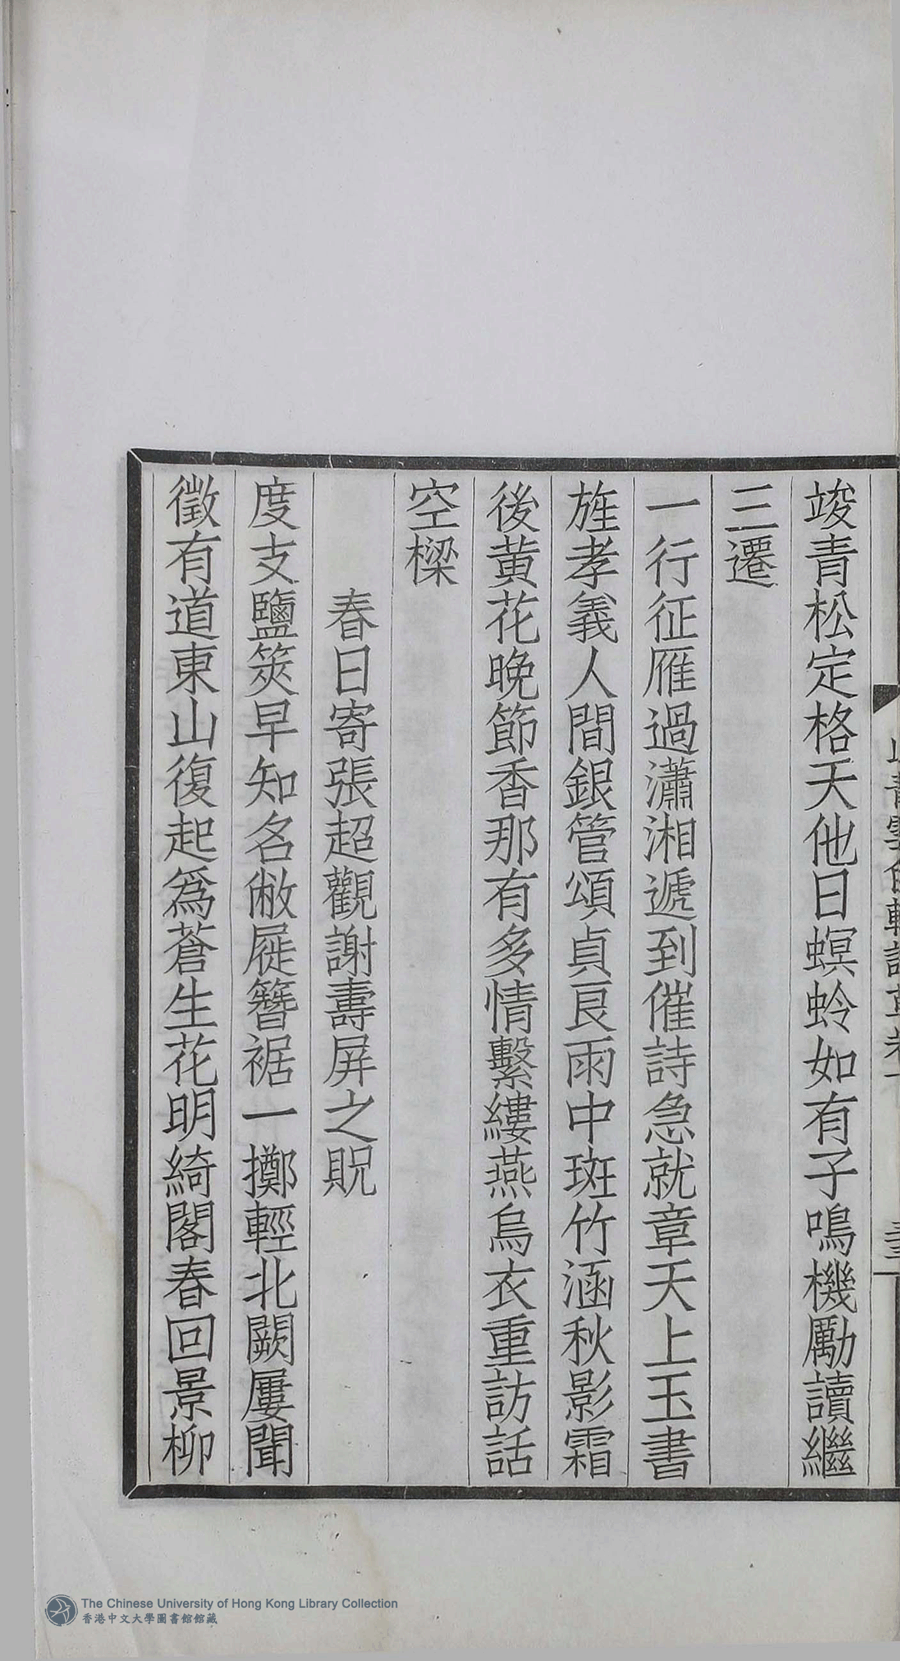 竣青松定格天他日螟蛉如有子鳴機勵讀繼
三遷
一行征雁過瀟湘遞到催詩急就章天上玉書
旌孝義人間銀管頌貞良雨中斑竹涵秋影霜
後黃花晚節香那有多情繫縷燕烏衣重訪話
空樑
春日寄張超觀謝壽屏之貺
度支鹽筴早知名敝屣簪裾一擲輕北闕屢聞
徵有道東山復起為蒼生花明綺閣春回景柳
The Chinese University of Hong Kong Library Collection
香港中文大學圖書館館藏